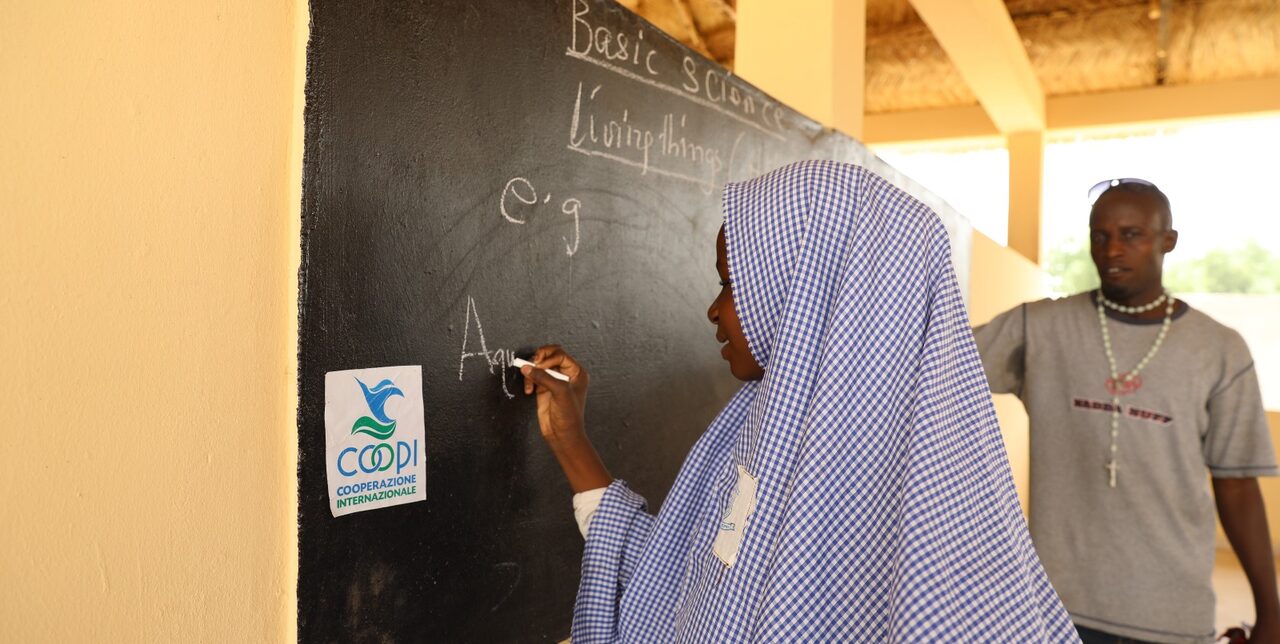 Basic Science
Living things
e.g
Aqu
COOPI
COOPERAZIONE
INTERNAZIONALE